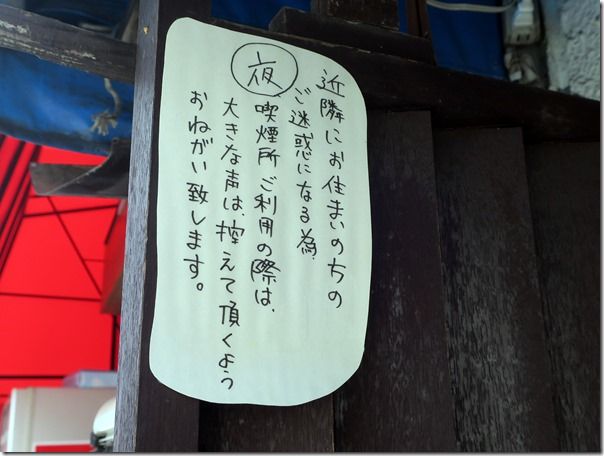 近隣にお住まいの方の
ご迷惑になる為、
夜、喫煙所ご利用の際は、
大きな声は、控えて頂くよう
おねがい致します。